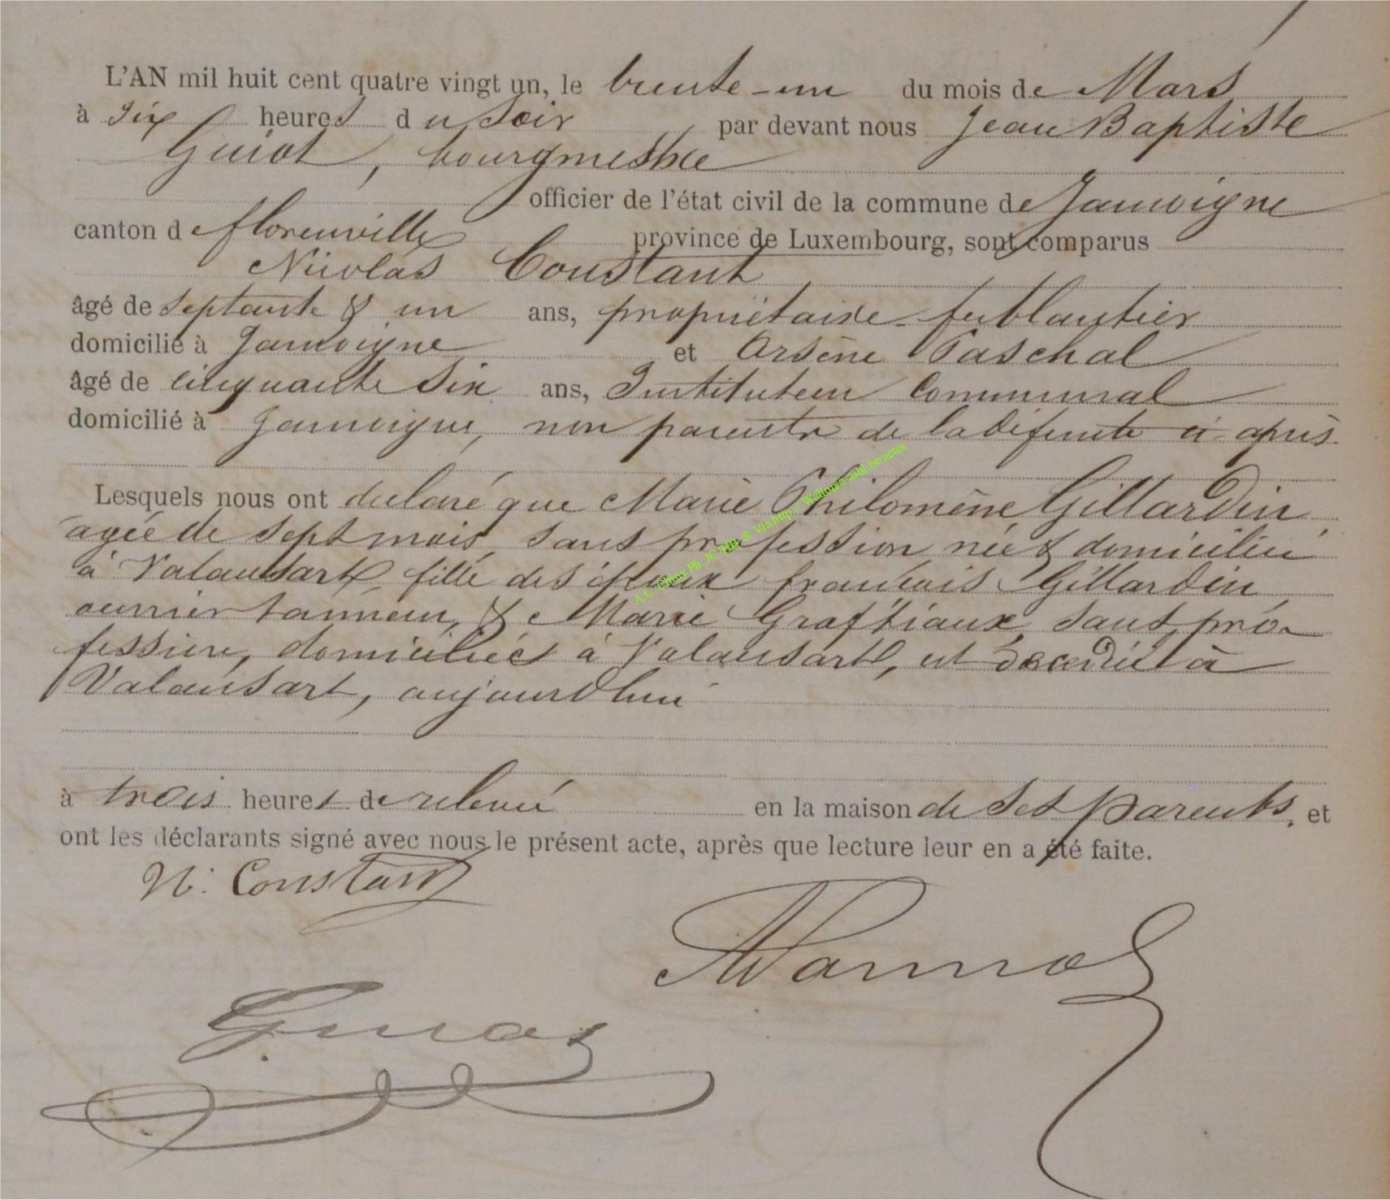 L'AN mil huit cent quatre vingt un, le trente-un du mois de Mars
à six heures du Soir par devant nous Jean Baptiste
Guiot, bourgmestre
officier de l'état civil de la commune de Jamoigne
canton de florenville province de Luxembourg, sont comparus
Nicolas Constant
âgé de septante & un ans, propriétaire ferblantier
domicilié à Jamoigne et Arsène Paschal
âgé de cinquante six ans, Instituteur Communal
domicilié à Jamoigne, non parents de la défunte ci-après
Lesquels nous ont déclaré que Marie Philomène Gillardin
agée de sept mois, sans profession née & domiciliée
à Valansart, fille des époux françois Gillardin,
ouvrier tanneur, & Marie Graftiaux, sans pro-
fession, domiciliés à Valansart, est décédée à
Valansart, aujourd'hui
à trois heures de relevée en la maison de ses parents, et
ont les déclarants signé avec nous le présent acte, après que lecture leur en a été faite.
N. Constant
Guiot